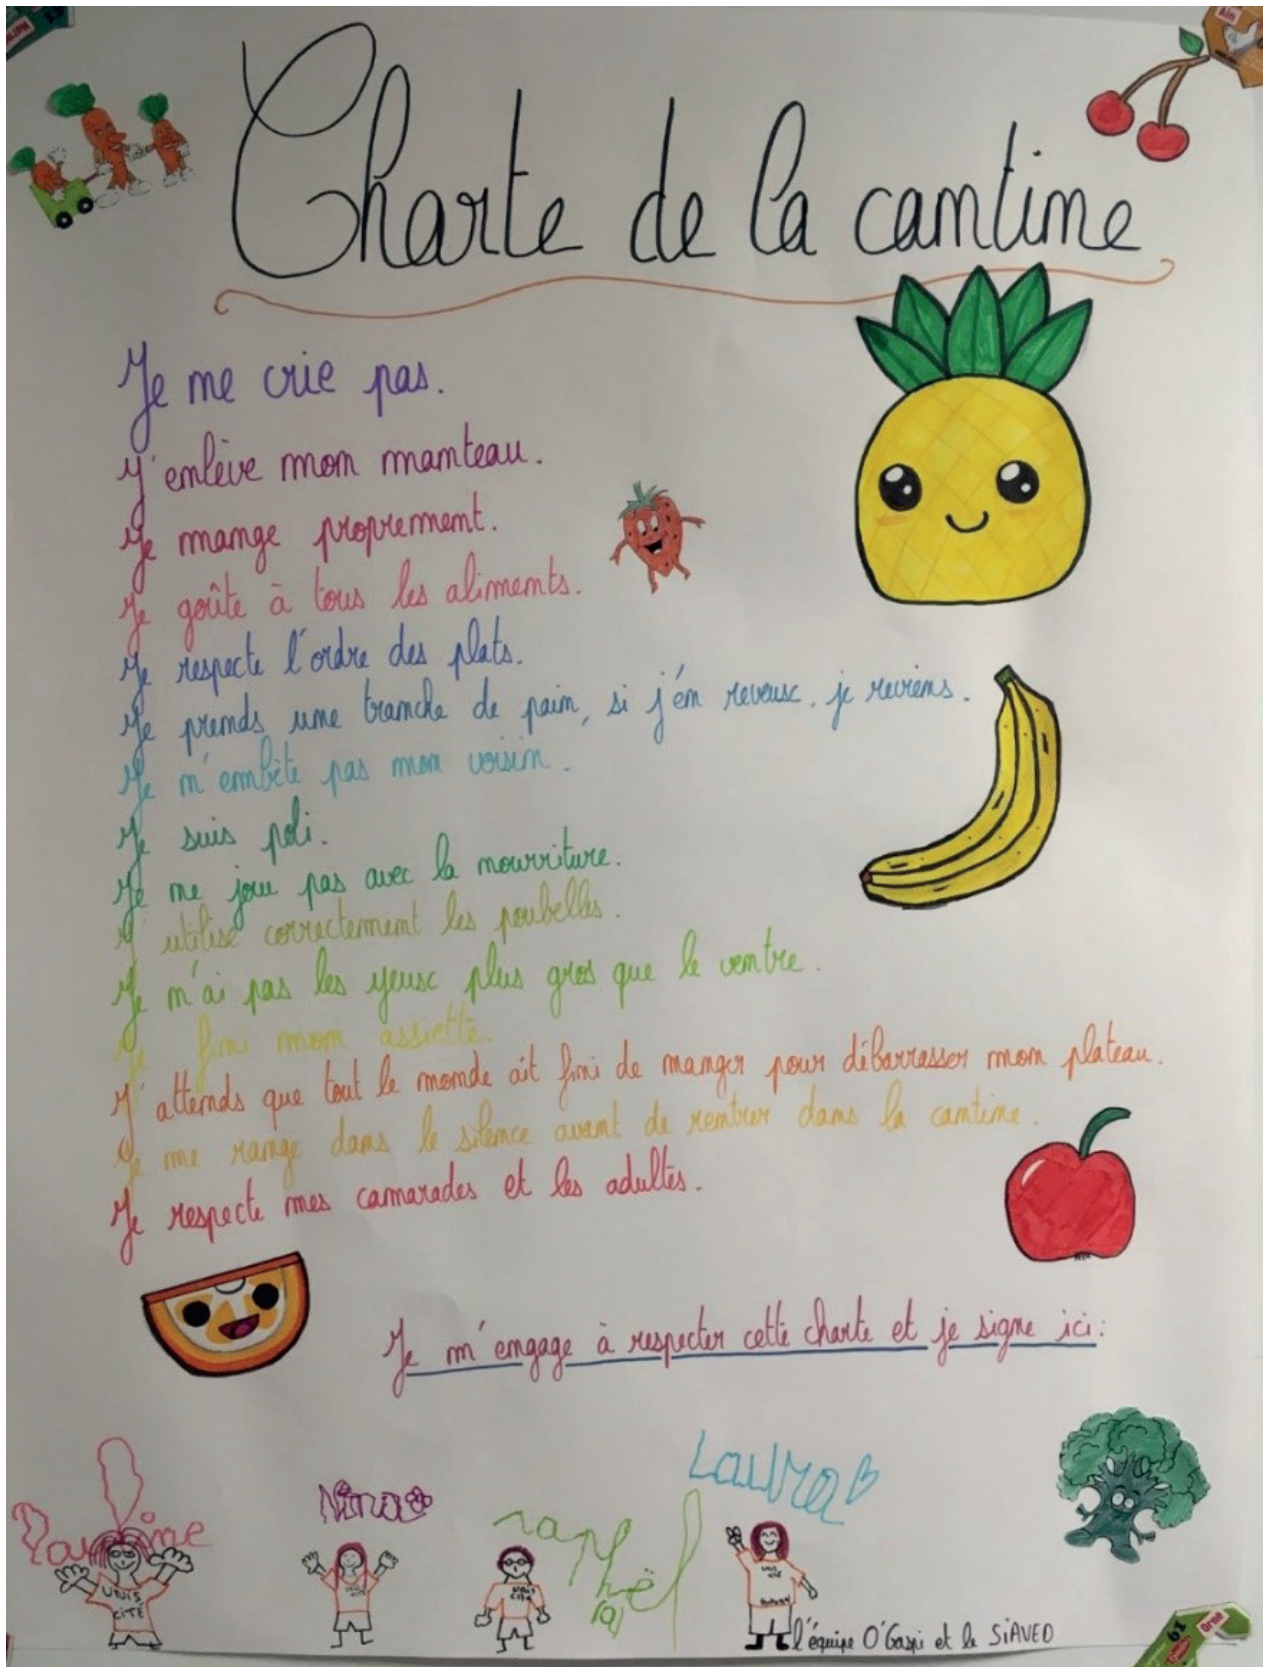 Charte de la cantine
Je ne crie pas.
J'enlève mon manteau.
Je mange proprement.
Je goûte à tous les aliments.
Je respecte l'ordre des plats.
Je prends une tranche de pain, si j'en reveux, je reviens.
Je n'embête pas mon voisin.
Je suis poli.
Je ne joue pas avec la nourriture.
J'utilise correctement les poubelles.
Je n'ai pas les yeux plus gros que le ventre.
Je fini mon assiette.
J'attends que tout le monde ait fini de manger pour débarrasser mon plateau.
Je me range dans le silence avant de rentrer dans la cantine.
Je respecte mes camarades et les adultes.
Je m'engage à respecter cette charte et je signe ici:
Pauline
Nina
raphaël
Laura
UNIS
CITÉ
UNIS
CITÉ
l'équipe O'Gaspi et le SIAVED
Ain
61
Orne